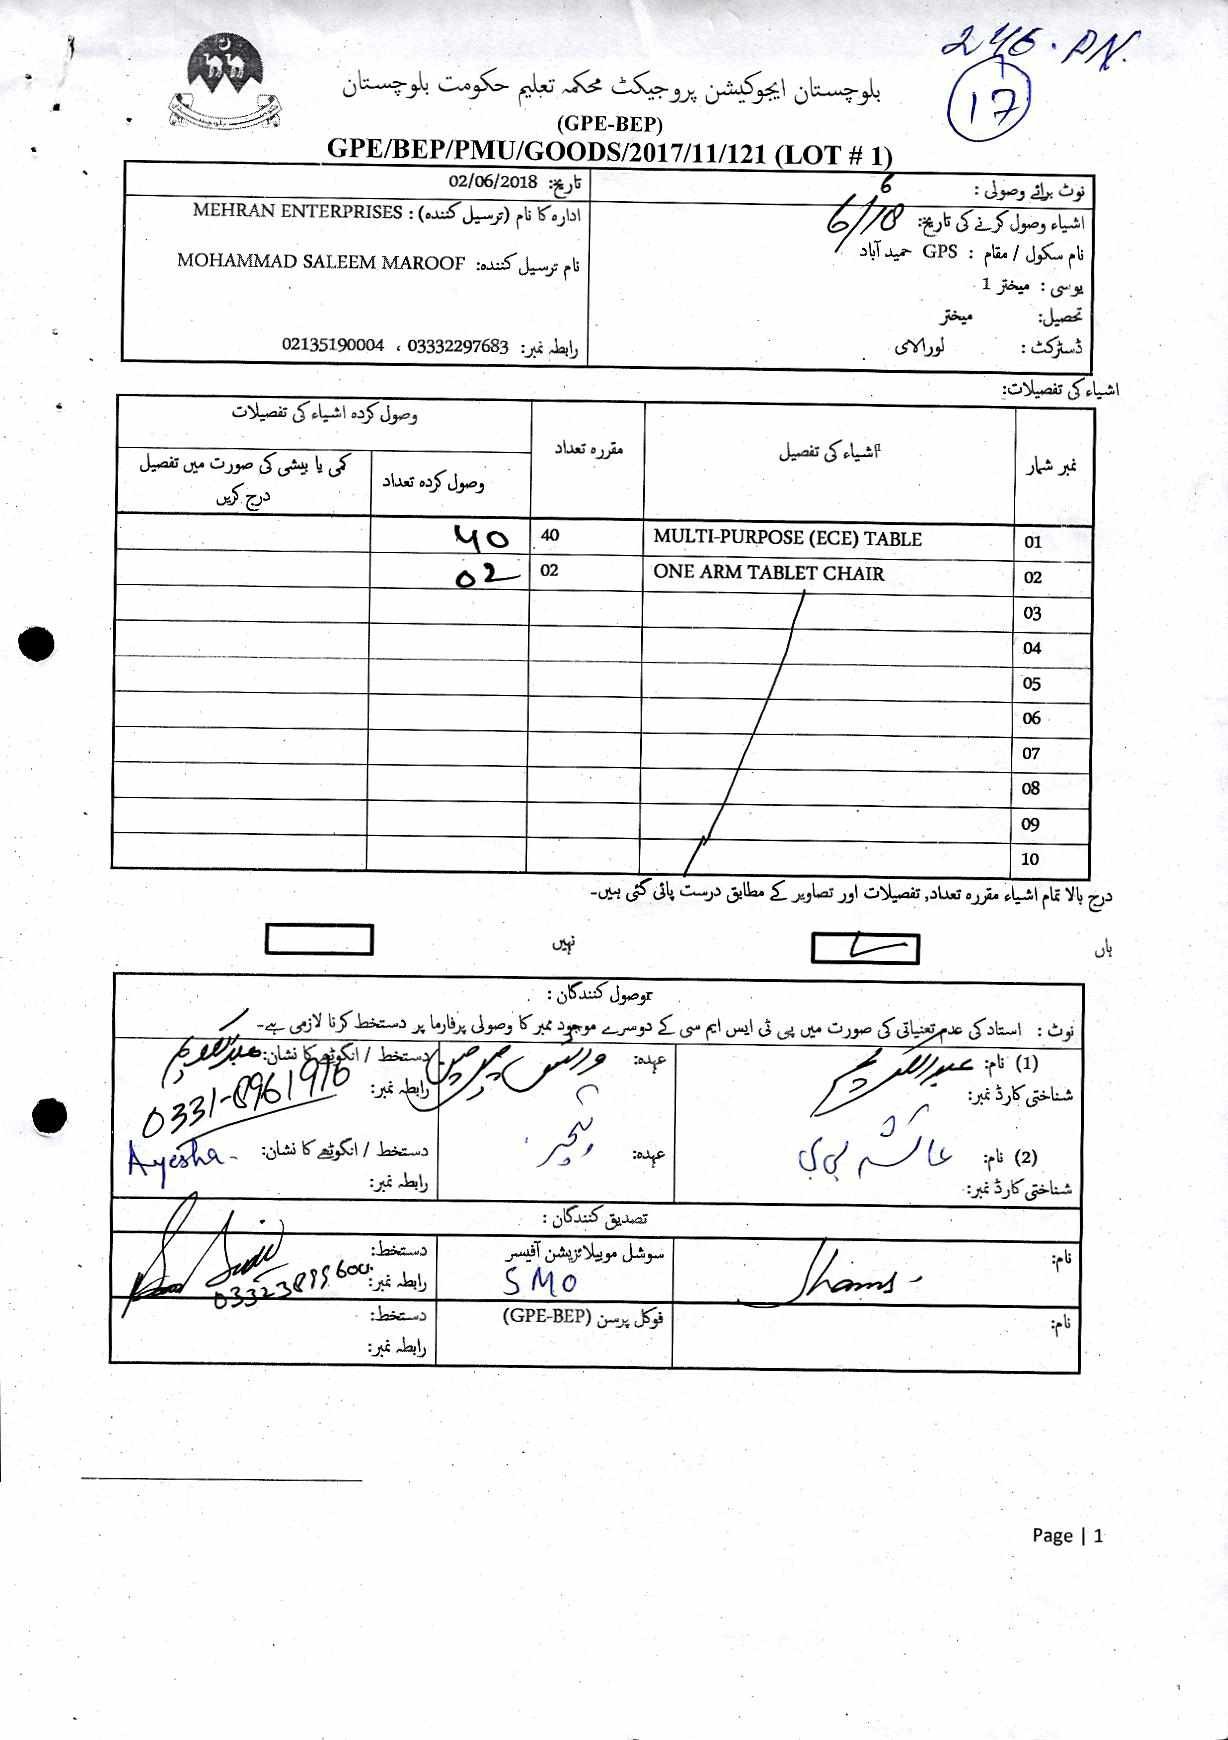 246 . PN.
17
بلوچستان ایجوکیشن پروجیکٹ محکمہ تعلیم حکومت بلوچستان
(GPE-BEP)
GPE/BEP/PMU/GOODS/2017/11/121 (LOT # 1)
نوٹ برائے وصولی : 6
تاریخ: 02/06/2018
اشیاء وصول کرنے کی تاریخ: 6/18
ادارہ کا نام (ترسیل کنندہ) : MEHRAN ENTERPRISES
نام سکول / مقام : GPS حمید آباد
نام ترسیل کنندہ: MOHAMMAD SALEEM MAROOF
یوسی : میختر 1
تحصیل: میختر
ڈسٹرکٹ : لورالائی
رابطہ نمبر: 03332297683 ، 02135190004
اشیاء کی تفصیلات:
نمبر شمار اشیاء کی تفصیل مقررہ تعداد وصول کردہ اشیاء کی تفصیلات
وصول کردہ تعداد کمی یا بیشی کی صورت میں تفصیل درج کریں
01 MULTI-PURPOSE (ECE) TABLE 40 40
02 ONE ARM TABLET CHAIR 02 02
03
04
05
06
07
08
09
10
درج بالا تمام اشیاء مقررہ تعداد, تفصیلات اور تصاویر کے مطابق درست پائی گئی ہیں۔
ہاں نہیں
وصول کنندگان :
نوٹ : استاد کی عدم تعیناتی کی صورت میں پی ٹی ایس ایم سی کے دوسرے موجود ممبر کا وصولی پرفارما پر دستخط کرنا لازمی ہے۔
(1) نام: عبدالکریم عہدہ: دستخط / انگوٹھے کا نشان: عبدالکریم
شناختی کارڈ نمبر: رابطہ نمبر: 0331-8961976
(2) نام: عائشہ بی بی عہدہ: ٹیچر دستخط / انگوٹھے کا نشان: Ayesha
شناختی کارڈ نمبر: رابطہ نمبر:
تصدیق کنندگان :
نام: Shams سوشل موبیلائزیشن آفیسر دستخط:
SMO رابطہ نمبر: 03323899600
نام: فوکل پرسن (GPE-BEP) دستخط:
رابطہ نمبر:
Page | 1